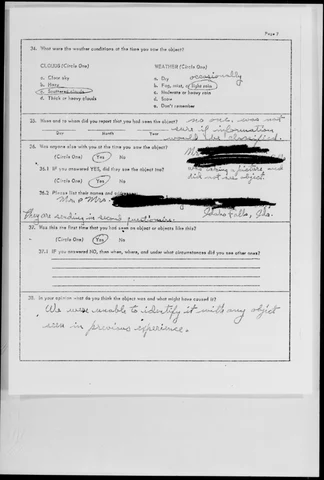 Page 7
24. What were the weather conditions at the time you saw the object?
CLOUDS (Circle One)
WEATHER (Circle One)
a. Clear sky
b. Hazy
c. Scattered clouds
d. Thick or heavy clouds
a. Dry occasionally
b. Fog, mist, or light rain
c. Moderate or heavy rain
d. Snow
e. Don't remember
25. When and to whom did you report that you had seen the object?
no one, was not
sure if information
would be classified.
Day Month Year
26. Was anyone else with you at the time you saw the object?
(Circle One) Yes No
26.1 If you answered YES, did they see the object too?
(Circle One) Yes No
did not see object.
26.2 Please list their names and
Mr. & Mrs.
They are sending in second
Idaho Falls, Ida.
27. Was this the first time that you had seen an object or objects like this?
(Circle One) Yes No
27.1 If you answered NO, then when, where, and under what circumstances did you see other ones?
28. In your opinion what do you think the object was and what might have caused it?
We were unable to identify it with any object
seen in previous experience.